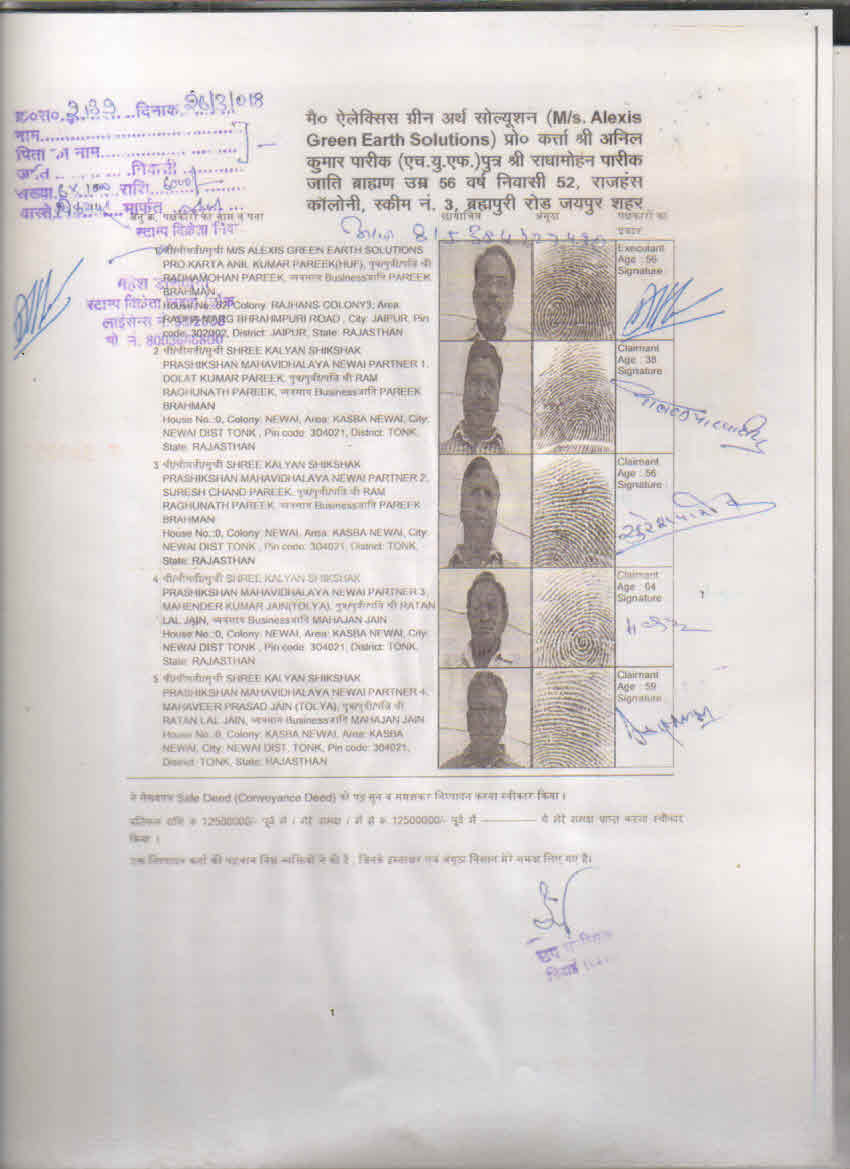 क्र०स०. 3139 दिनाक 26/3/018
नाम
पिता का नाम
जाति निवासी
संख्या 6x1000 राशि 6000/-
वास्ते मार्फत
स्टाम्प विक्रेता
मै० ऐलेक्सिस ग्रीन अर्थ सोल्यूशन (M/s. Alexis
Green Earth Solutions) प्रो० कर्त्ता श्री अनिल
कुमार पारीक (एच.यु.एफ.)पुत्र श्री राधामोहन पारीक
जाति ब्राह्मण उम्र 56 वर्ष निवासी 52, राजहंस
कॉलोनी, स्कीम नं. 3, ब्रह्मपुरी रोड जयपुर शहर
अनु क्र. पक्षकारों का नाम व पता छायाचित्र अंगुठा पक्षकारों का
प्रकार
1 श्री/श्रीमती/सुश्री M/S ALEXIS GREEN EARTH SOLUTIONS
PRO KARTA ANIL KUMAR PAREEK(HUF), पुत्र/पुत्री/पति श्री
RADHAMOHAN PAREEK, व्यवसाय Businessजाति PAREEK
BRAHMAN
House No.:52, Colony: RAJHANS COLONY3, Area:
MARG BHRAHMPURI ROAD , City: JAIPUR, Pin
code: 302002, District: JAIPUR, State: RAJASTHAN
Executant
Age : 56
Signature
महेश
स्टाम्प विक्रेता
लाईसेन्स नं.
मो. नं.
2 श्री/श्रीमती/सुश्री SHREE KALYAN SHIKSHAK
PRASHIKSHAN MAHAVIDHALAYA NEWAI PARTNER 1,
DOLAT KUMAR PAREEK, पुत्र/पुत्री/पति श्री RAM
RAGHUNATH PAREEK, व्यवसाय Businessजाति PAREEK
BRAHMAN
House No.:0, Colony: NEWAI, Area: KASBA NEWAI, City:
NEWAI DIST TONK , Pin code: 304021, District: TONK,
State: RAJASTHAN
Claimant
Age : 38
Signature
3 श्री/श्रीमती/सुश्री SHREE KALYAN SHIKSHAK
PRASHIKSHAN MAHAVIDHALAYA NEWAI PARTNER 2,
SURESH CHAND PAREEK, पुत्र/पुत्री/पति श्री RAM
RAGHUNATH PAREEK, व्यवसाय Businessजाति PAREEK
BRAHMAN
House No.:0, Colony: NEWAI, Area: KASBA NEWAI, City:
NEWAI DIST TONK , Pin code: 304021, District: TONK,
State: RAJASTHAN
Claimant
Age : 56
Signature
4 श्री/श्रीमती/सुश्री SHREE KALYAN SHIKSHAK
PRASHIKSHAN MAHAVIDHALAYA NEWAI PARTNER 3,
MAHENDER KUMAR JAIN(TOLYA), पुत्र/पुत्री/पति श्री RATAN
LAL JAIN, व्यवसाय Businessजाति MAHAJAN JAIN
House No.:0, Colony: NEWAI, Area: KASBA NEWAI, City:
NEWAI DIST TONK , Pin code: 304021, District: TONK,
State: RAJASTHAN
Claimant
Age : 64
Signature
5 श्री/श्रीमती/सुश्री SHREE KALYAN SHIKSHAK
PRASHIKSHAN MAHAVIDHALAYA NEWAI PARTNER 4,
MAHAVEER PRASAD JAIN (TOLYA), पुत्र/पुत्री/पति श्री
RATAN LAL JAIN, व्यवसाय Businessजाति MAHAJAN JAIN
House No.:0, Colony: KASBA NEWAI, Area: KASBA
NEWAI, City: NEWAI DIST. TONK, Pin code: 304021,
District: TONK, State: RAJASTHAN
Claimant
Age : 59
Signature
ने लेख्यपत्र Sale Deed (Conveyance Deed) को पढ़ सुन व समझकर निष्पादन करना स्वीकार किया ।
प्रतिफल राशि रू 12500000/- पूर्व में / मेरे समक्ष / में से रू 12500000/- पूर्व में ये मेरे समक्ष प्राप्त करना स्वीकार
किया ।
उक्त निष्पादन कर्ता की पहचान निम्न व्यक्तियों ने की है , जिनके हस्ताक्षर एवं अंगुठा निशान मेरे समक्ष लिए गए है।
1